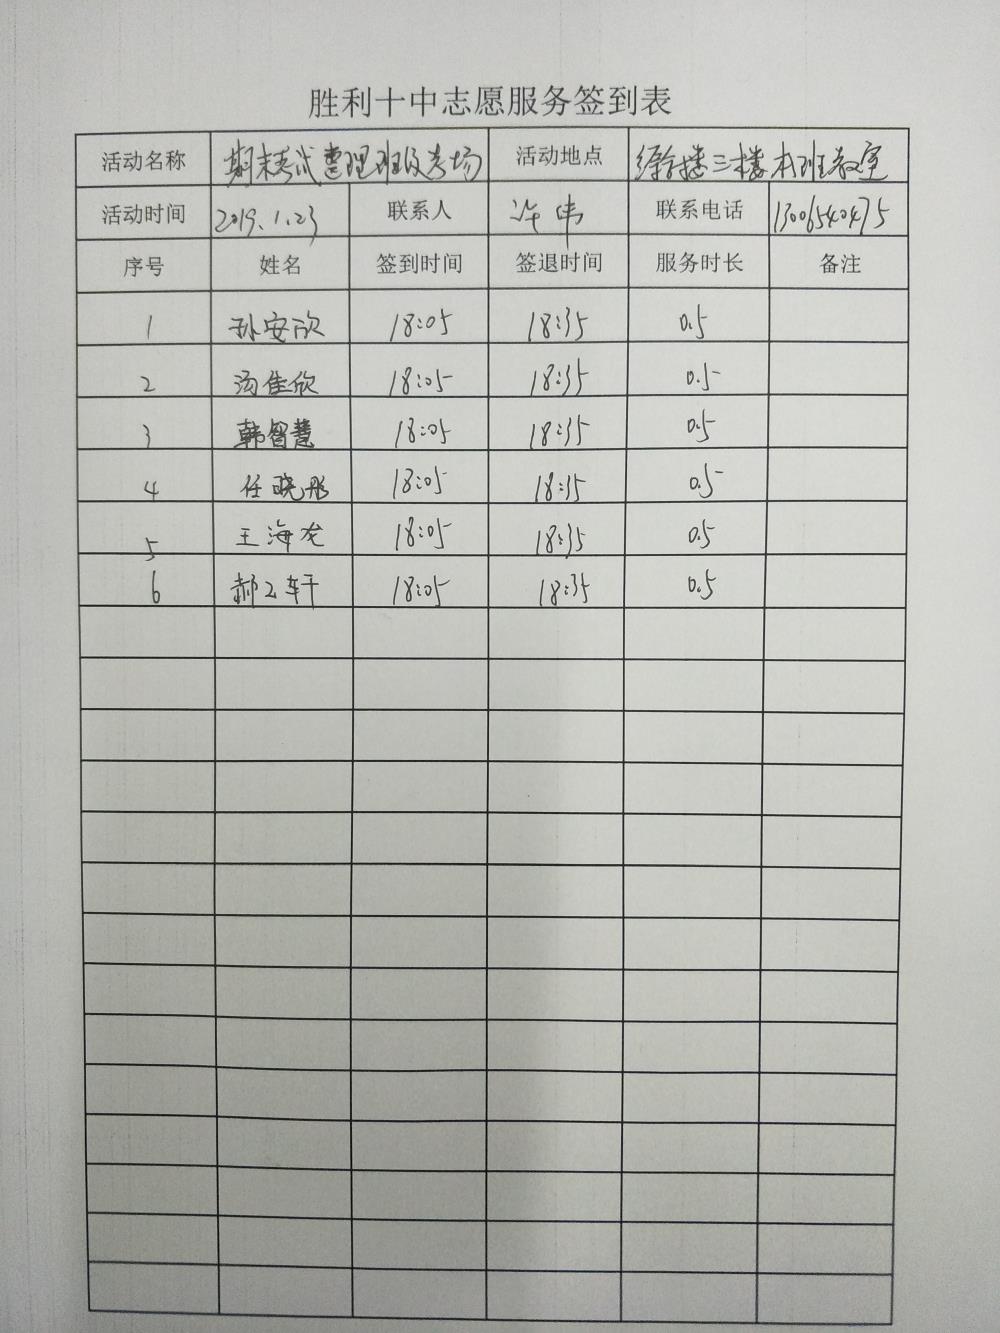 胜利十中志愿服务签到表
活动名称 期末考试整理班级考场 活动地点 综合楼三楼本班教室
活动时间 2019.1.23 联系人 许伟 联系电话 13006540475
序号 姓名 签到时间 签退时间 服务时长 备注
1 孙安欣 18:05 18:35 0.5
2 汤佳欣 18:05 18:35 0.5
3 韩智慧 18:05 18:35 0.5
4 任晓彤 18:05 18:35 0.5
5 王海龙 18:05 18:35 0.5
6 郝 轩 18:05 18:35 0.5